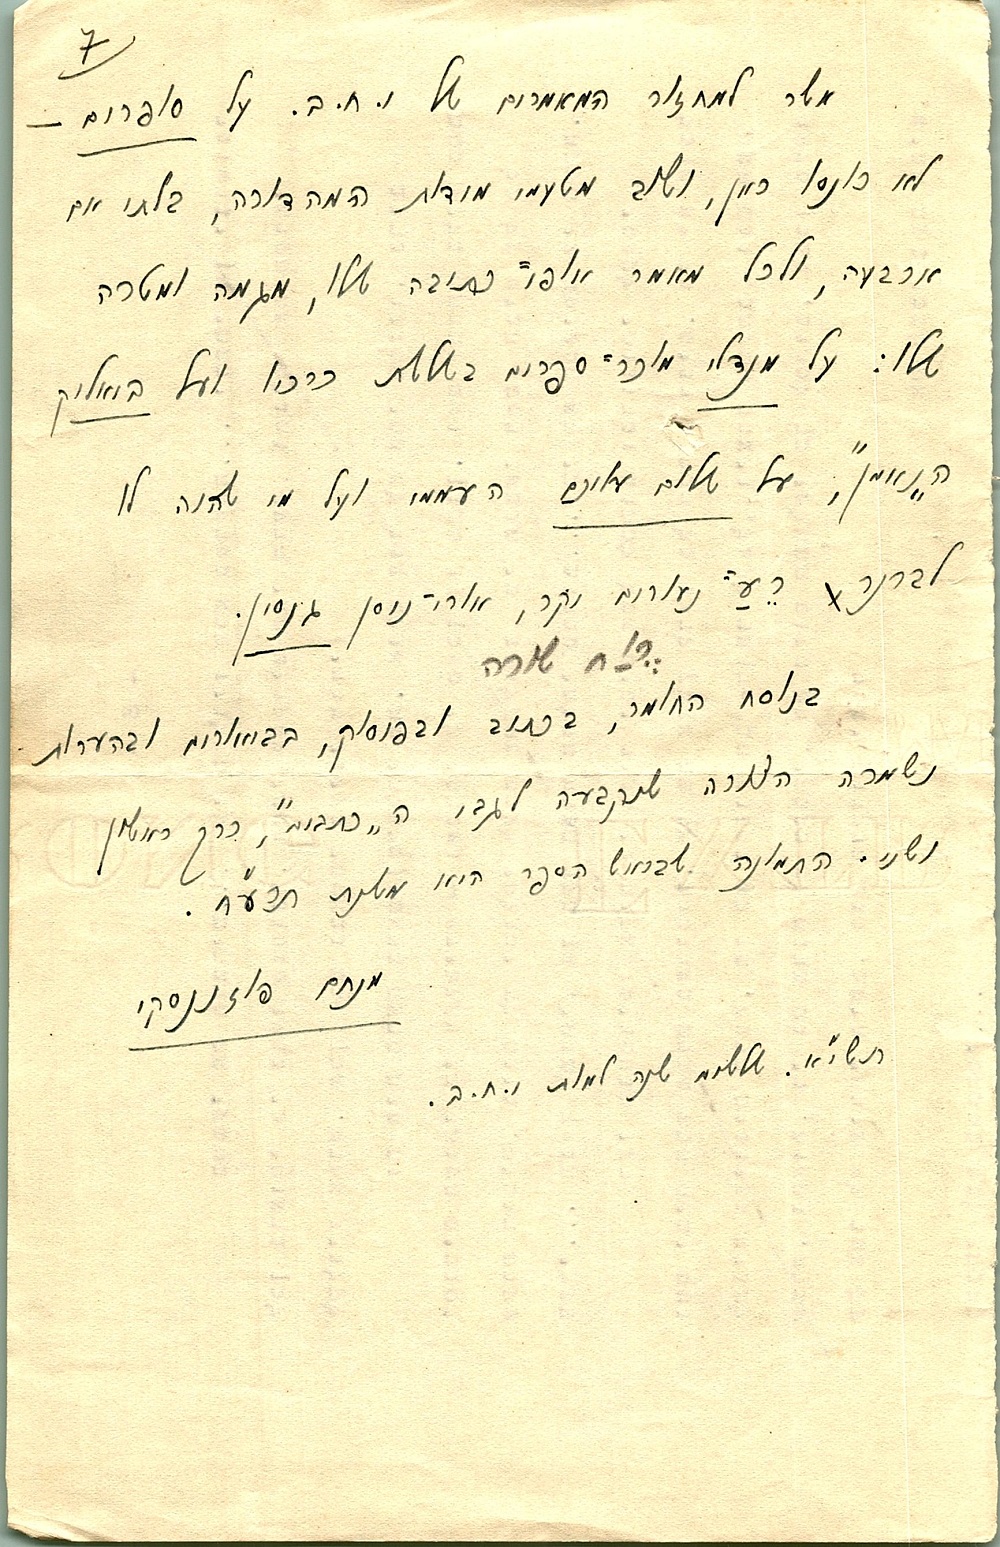 7
אשר למחזור המאמרים של י. ח. ב. על סופרים –
לא כונסו כאן, ושוב מטעמי מידות המהדורה, בלתי אם
ארבעה, ולכל מאמר אופי־כתיבה שלו, מגמה ומטרה
שלו: על מנדלי מוכר־ספרים בשלשת כרכיו ועל ביאליק
ה„נאמן”, על שלום עליכם העממי ועל מי שהיה לו
לברנר רֵעַ־נעורים יקר, אורי־ניסן גנסין.
רֶוַח שורה
בנוסח החומר, בכתיב ובפיסוק, בביאורים ובהערות
נשמרה הצורה שנקבעה לגבי ה„כתבים”, כרך ראשון
ושני. התמונה שבראש הספר היא משנת תרע״ח.
מנחם פוזננסקי
תשי״א. שלשים שנה למות י. ח. ב.